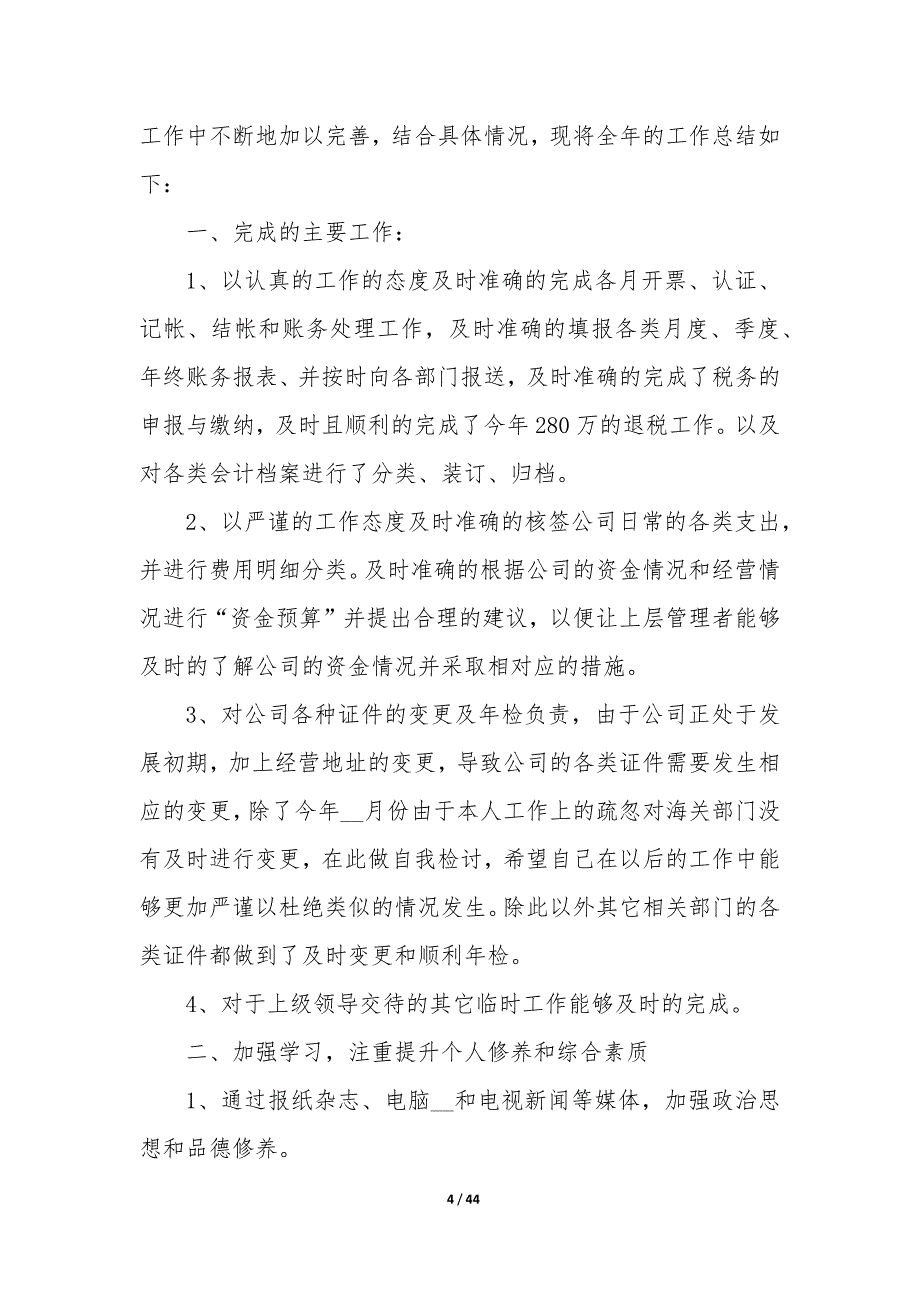 工作中不断地加以完善，结合具体情况，现将全年的工作总结如
下：
一、完成的主要工作：
1、以认真的工作的态度及时准确的完成各月开票、认证、
记帐、结帐和账务处理工作，及时准确的填报各类月度、季度、
年终账务报表、并按时向各部门报送，及时准确的完成了税务的
申报与缴纳，及时且顺利的完成了今年 280 万的退税工作。以及
对各类会计档案进行了分类、装订、归档。
2、以严谨的工作态度及时准确的核签公司日常的各类支出，
并进行费用明细分类。及时准确的根据公司的资金情况和经营情
况进行“资金预算”并提出合理的建议，以便让上层管理者能够
及时的了解公司的资金情况并采取相对应的措施。
3、对公司各种证件的变更及年检负责，由于公司正处于发
展初期，加上经营地址的变更，导致公司的各类证件需要发生相
应的变更，除了今年__月份由于本人工作上的疏忽对海关部门没
有及时进行变更，在此做自我检讨，希望自己在以后的工作中能
够更加严谨以杜绝类似的情况发生。除此以外其它相关部门的各
类证件都做到了及时变更和顺利年检。
4、对于上级领导交待的其它临时工作能够及时的完成。
二、加强学习，注重提升个人修养和综合素质
1、通过报纸杂志、电脑__和电视新闻等媒体，加强政治思
想和品德修养。
4 / 44